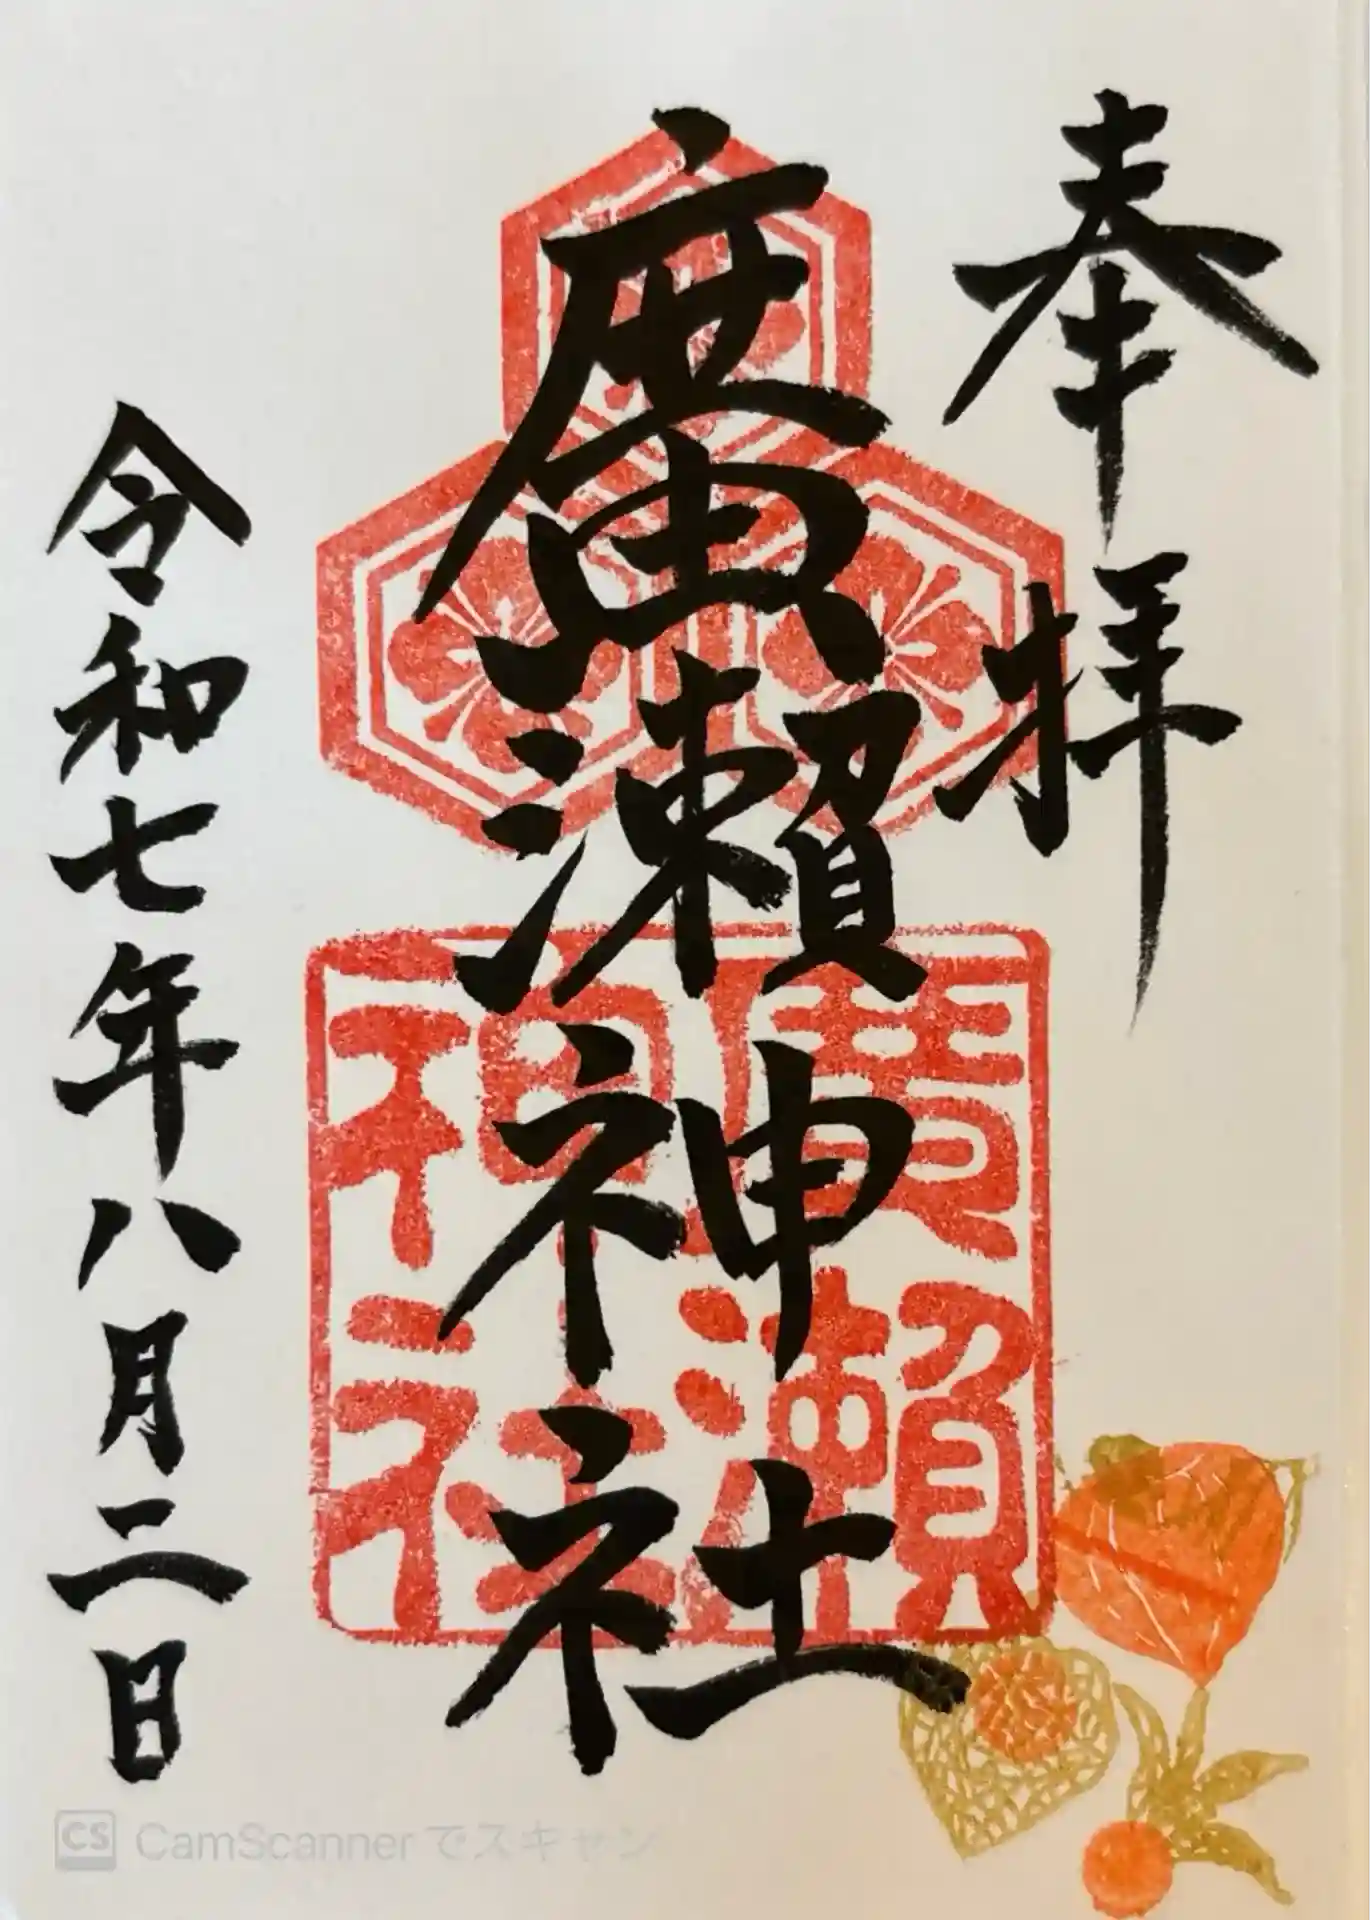 奉拝
廣瀬神社
廣瀬神社
令和七年八月二日
CS CamScannerでスキャン